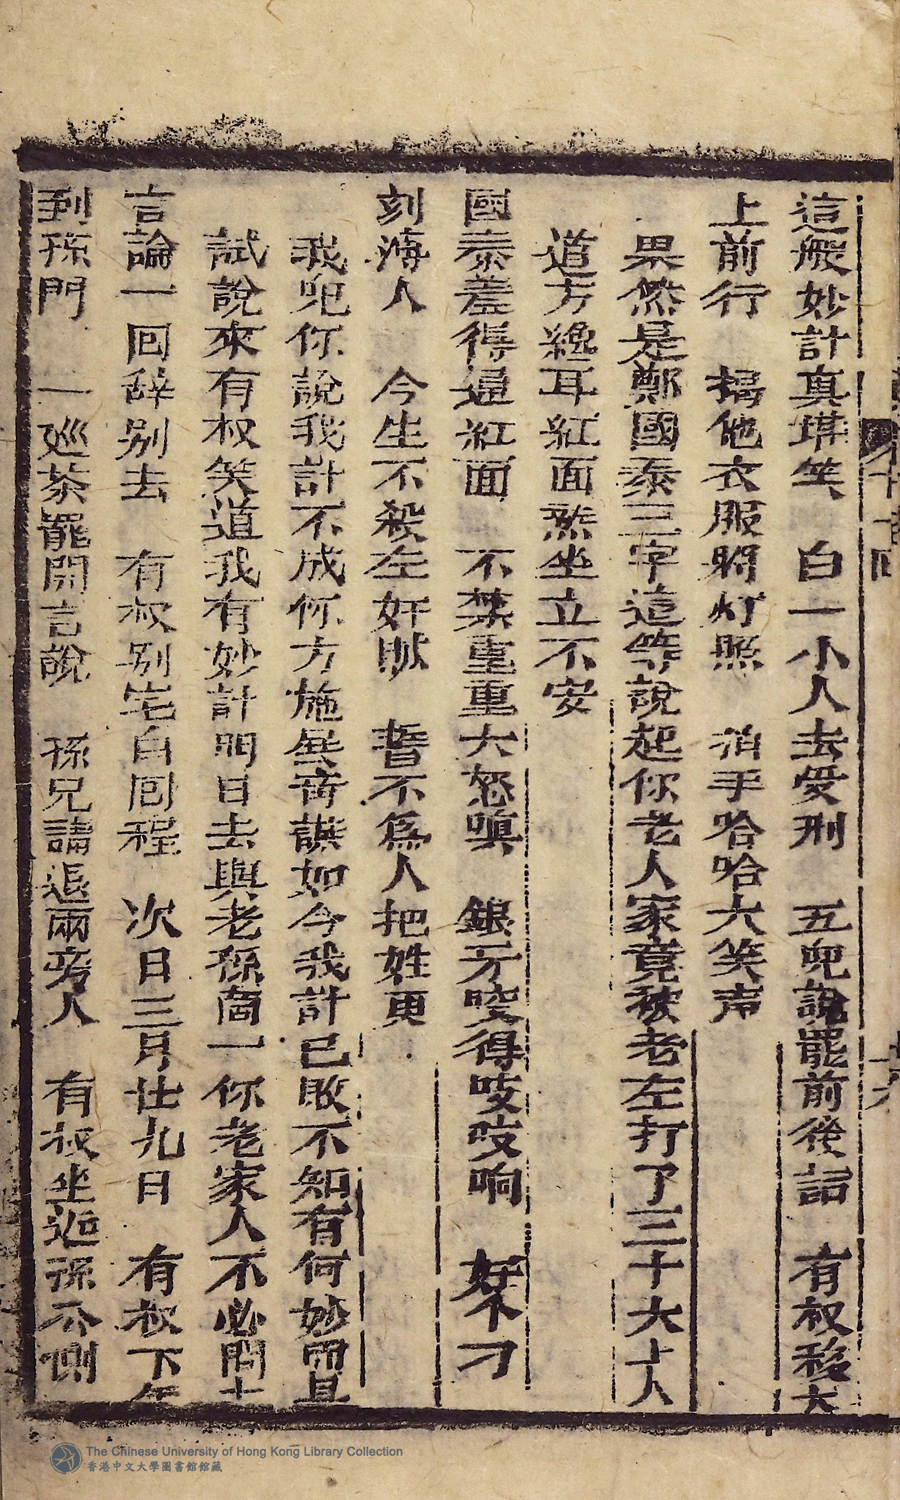 這般妙計真堪笑 白一小人去受刑 五鬼說罷前後話 有权移大
上前行 揭他衣服將灯照 泊手哈哈大笑声
果然是鄭國泰三字這等說起你老人家竟被老左打了三十大十人
道方纔耳紅面熱坐立不安
國泰羞得通紅面 不禁重重大怒嗔 銀牙咬得吱吱响 好个刁
刻薄人 今生不殺左奸賊 誓不為人把姓更
我兜你說我計不成你方施展奇謀如今我計已敗不知有何妙
試說來有权笑道我有妙計明日去與老孫商一你老家人不必問
言論一囬辞别去 有权别宅自囬程 次日三月廿九日 有权下午
到孫門 一巡茶罷開言說 孫兄請退兩旁人 有权坐近孫
側
The Chinese University of Hong Kong Library Collection
香港中文大學圖書館館藏